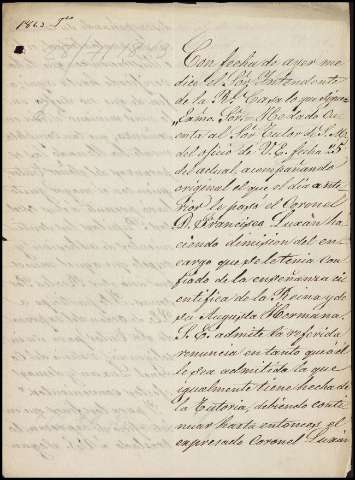 1843 Jº
Con fecha de ayer me
dice el Sor. Intendente
de la Rl. Casa lo que sigue=
„Excmo. Sor.= He dado cu
enta al Sor. Tutor de S. M.
del oficio de V. E. fecha 25
del actual, acompañando
original el que el dia ante
rior le pasó el Coronel
D. Francisco Luxán ha
ciendo dimision del en
cargo que se le tenia con
fiado de la enseñanza ci
entifica de la Reina y de
su Augusta Hermana.
S. E. admite la referida
renuncia en tanto que á él
le sea admitida la que
igualmente tiene hecha de
la Tutoria, debiendo conti
nuar hasta entonces el
expresado Coronel Luxán